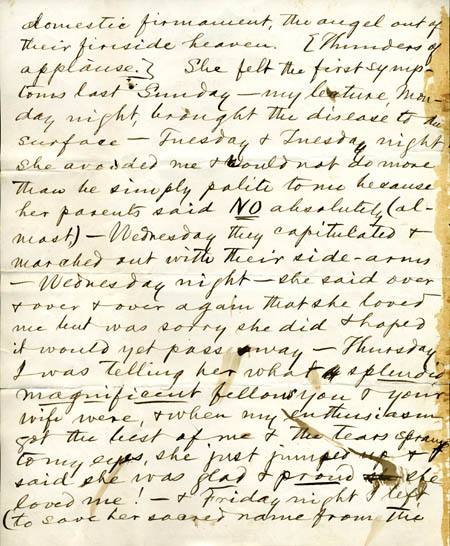 domestic firmament, the angel out of
their fireside heaven. [Thunders of
applause.] She felt the first symp-
toms last Sunday — my lecture, Mon-
day night, brought the disease to the
surface — Tuesday & Tuesday night
she avoided me & would not do more
than be simply polite to me because
her parents said NO absolutely (al-
most) — Wednesday they capitulated &
marched out with their side-arms
— Wednesday night — she said over
& over & over again that she loved
me but was sorry she did & hoped
it would yet pass away — Thursday
I was telling her what splendid
magnificent fellows you & your
wife were, & when my enthusiasm
got the best of me & the tears sprang
to my eyes, she just jumped up &
said she was glad & proud she
loved me! — & Friday night I left
(to save her sacred name from the